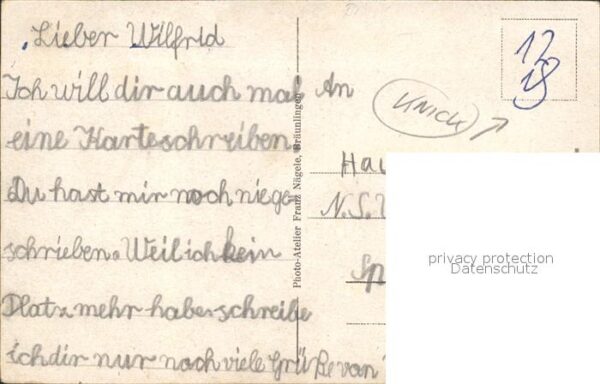 Lieber Wilfrid
Ich will dir auch mal
eine Karte schreiben.
Du hast mir noch niege-
schrieben. Weil ich kein
Platz mehr habe schreibe
ich dir nur noch viele Grüße von
Photo-Atelier Franz Nägele, Bräunlingen
12
KNICK
An
Hau
N.S.
Sp
privacy protection
Datenschutz